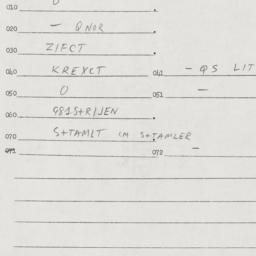 010
020 — QNOR
030 ZIFCT
040 KREYCT 041 — QS LIT
050 O 051 —
060
070 S+TAMLT CM S+TAMLER
071 072 —